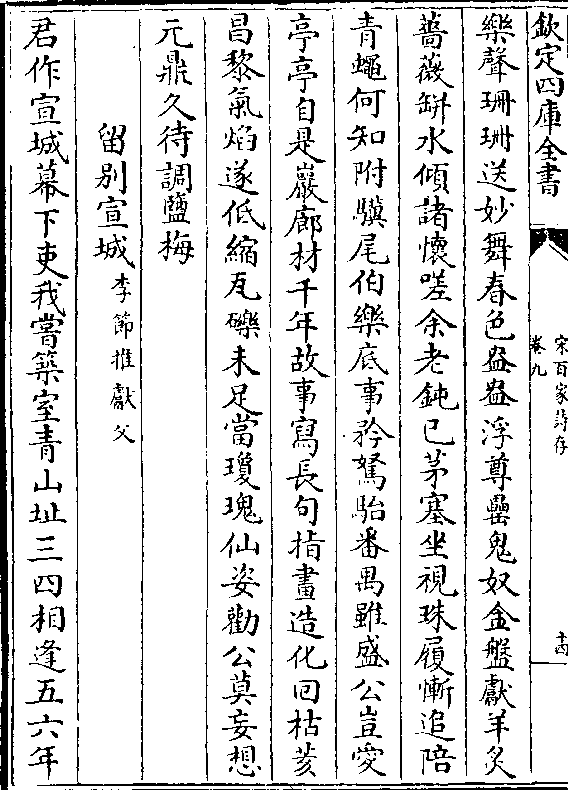 欽定四庫全書
宋百家詩存
卷九
十四
樂聲珊珊送妙舞春色盎盎浮尊罍鬼奴金盤獻羊炙
薔薇缾水傾諸懷嗟余老鈍已茅塞坐視珠履慚追陪
青蠅何知附驥尾伯樂底事矜駑駘番禺雖盛公豈愛
亭亭自是巖廊材千年故事寫長句指畫造化回枯荄
昌黎氣焰遂低縮瓦礫未足當瓊瑰仙姿勸公莫妄想
元鼎久待調鹽梅
留别宣城李節推獻父
君作宣城幕下吏我嘗築室青山址三四相逢五六年